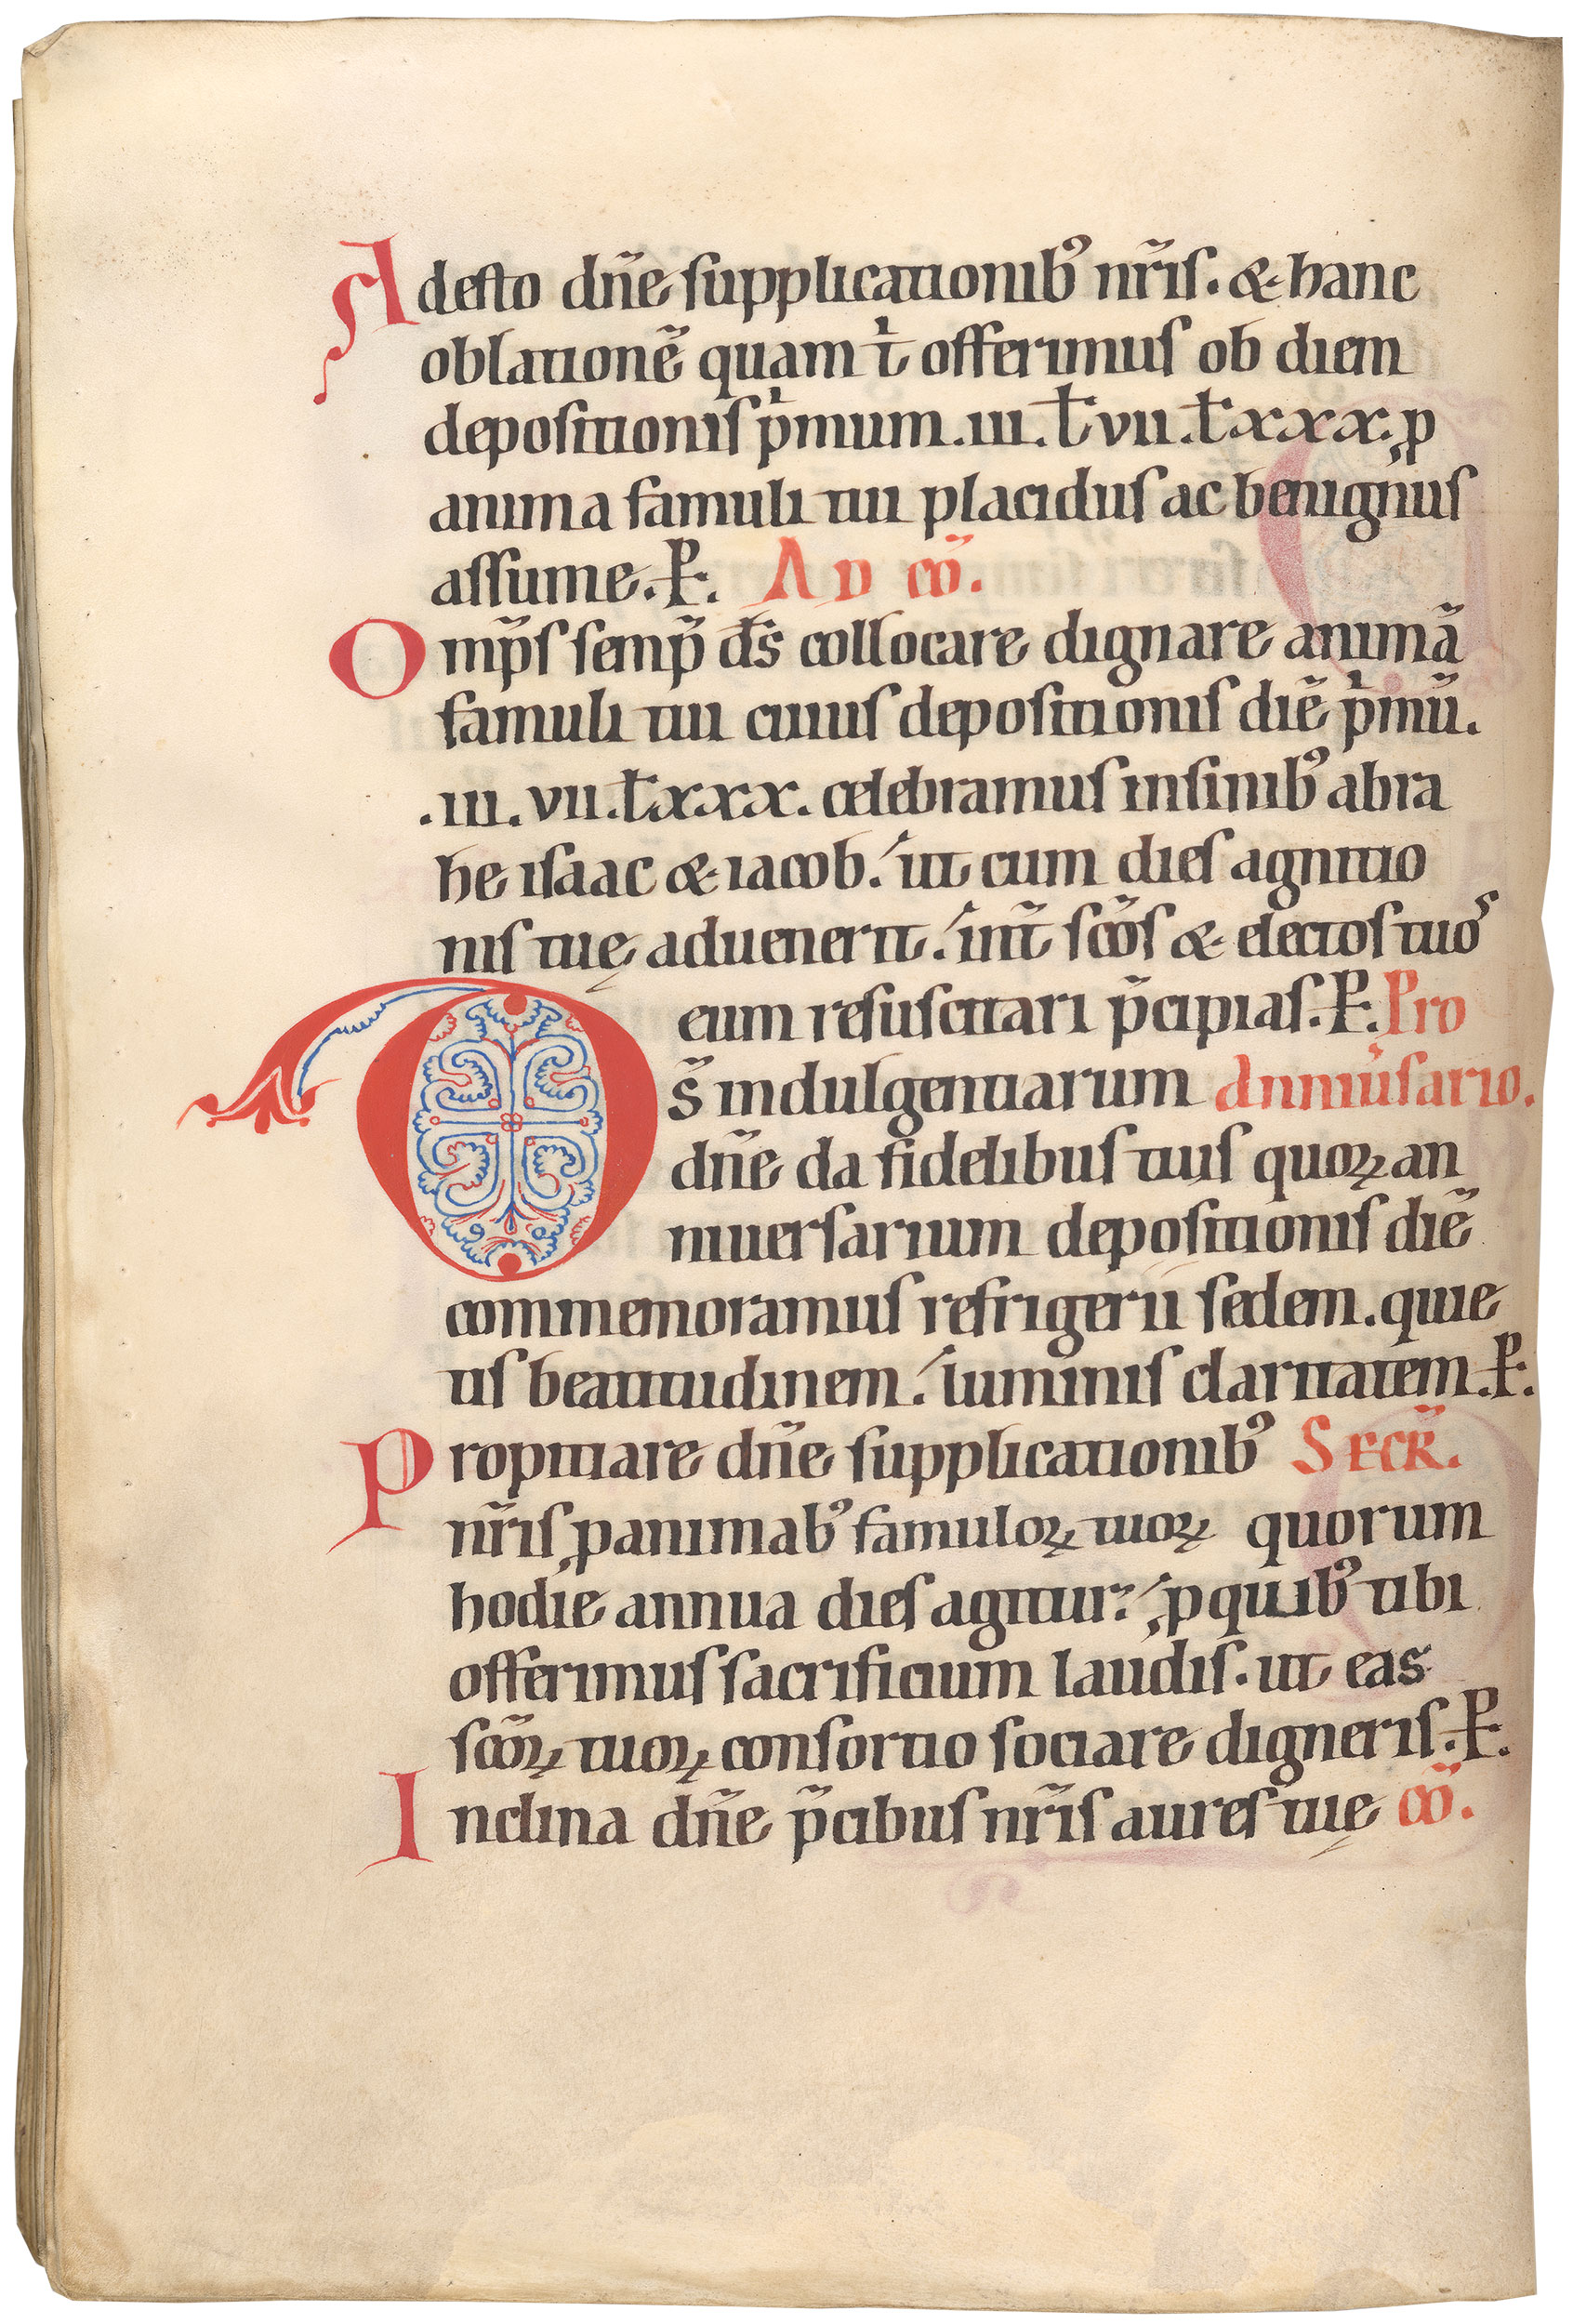 Adesto dñe supplicationibꝰ nr̃is. & hanc
oblationẽ quam tͥ offerimus ob diem
depositionis pͥmum .III. ł VII. ł XXX. ꝓ
anima famuli tui placidus ac benignus
assume. P. AD CÕ.
Omp̃s semp̃ ds̃ collocare dignare animã
famuli tui cuius depositionis diẽ pͥmũ.
.III. VII. ł XXX. celebramus in sinibꝰ abra
he isaac & iacob. ut cum dies agnitio
nis tuę aduenerit. int̃ scõs & electos tuoˢ
eum resuscitari p̃cipias. P. Pro
Ds̃ indulgentiarum Anniũsario.
dñe da fidelibus tuis quoꝝ an
niuersarium depositionis diẽ
commemoramus refrigerii sedem. quie
tis beatitudinem. luminis claritatem. P.
Propitiare dñe supplicationibꝰ SECR̃.
nr̃is ꝓ animabꝰ famuloꝝ tuoꝝ quorum
hodie annua dies agitur. ꝓ quibꝰ tibi
offerimus sacrificium laudis. ut eas
scõꝝ tuoꝝ consortio sociare digneris. P.
Inclina dñe p̃cibus nr̃is aures tuę CÕ.